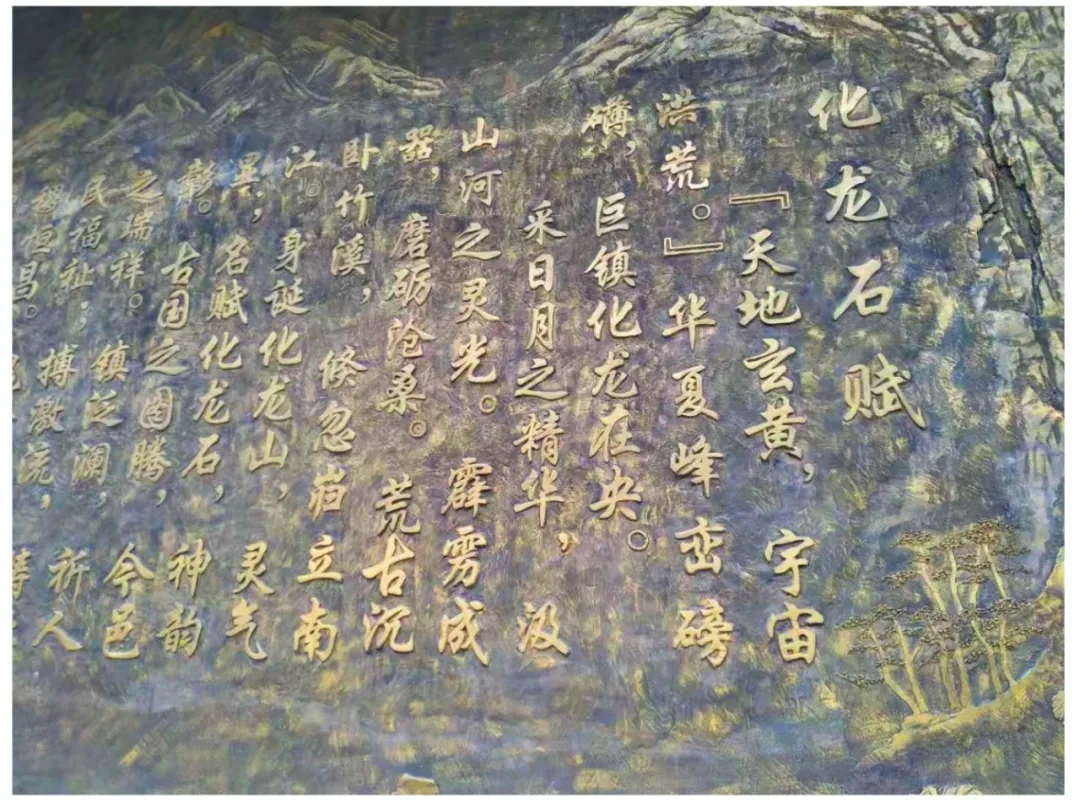 化龙石赋
『天地玄黄，宇宙
洪荒。』华夏峰峦磅
礴，巨镇化龙荘央。
采日月之精华，汲
山河之灵光。霹雳成
器，磨砺沧桑。荒古沉
卧竹溪，倏忽岿立南
江。身诞化龙山，灵气
異，名赋化龙石，神韵
彰。古国之图腾，今邑
之瑞祥。镇泛澜，祈人
民福祉；搏激流，祷
穆恒昌。